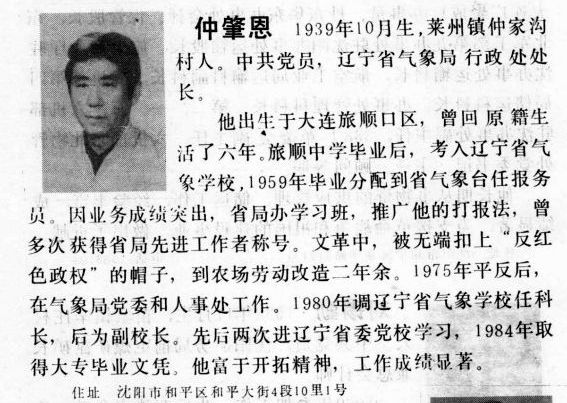 仲肇恩 1939年10月生,莱州镇仲家沟
村人。中共党员，辽宁省气象局行政处处
长。
他出生于大连旅顺口区，曾回原籍生
活了六年。旅顺中学毕业后，考入辽宁省气
象学校,1959年毕业分配到省气象台任报务
员。因业务成绩突出，省局办学习班，推广他的打报法，曾
多次获得省局先进工作者称号。文革中，被无端扣上“反红
色政权”的帽子，到农场劳动改造二年余。1975年平反后，
在气象局党委和人事处工作。1980年调辽宁省气象学校任科
长，后为副校长。先后两次进辽宁省委党校学习，1984年取
得大专毕业文凭。他富于开拓精神，工作成绩显著。
住址 沈阳市和平区和平大街4段10里1号